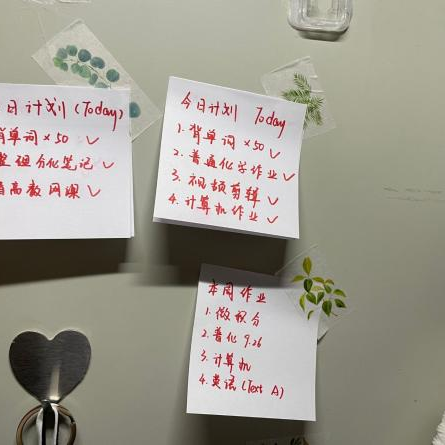 日计划 (Today)
背单词 ×50 ✓
分化笔记 ✓
高数网课 ✓
今日计划 Today
1. 背单词 ×50 ✓
2. 普通化学作业 ✓
3. 视频剪辑 ✓
4. 计算机作业 ✓
本周作业
1. 微积分
2. 普化 9.26
3. 计算机
4. 英语 (Text A)